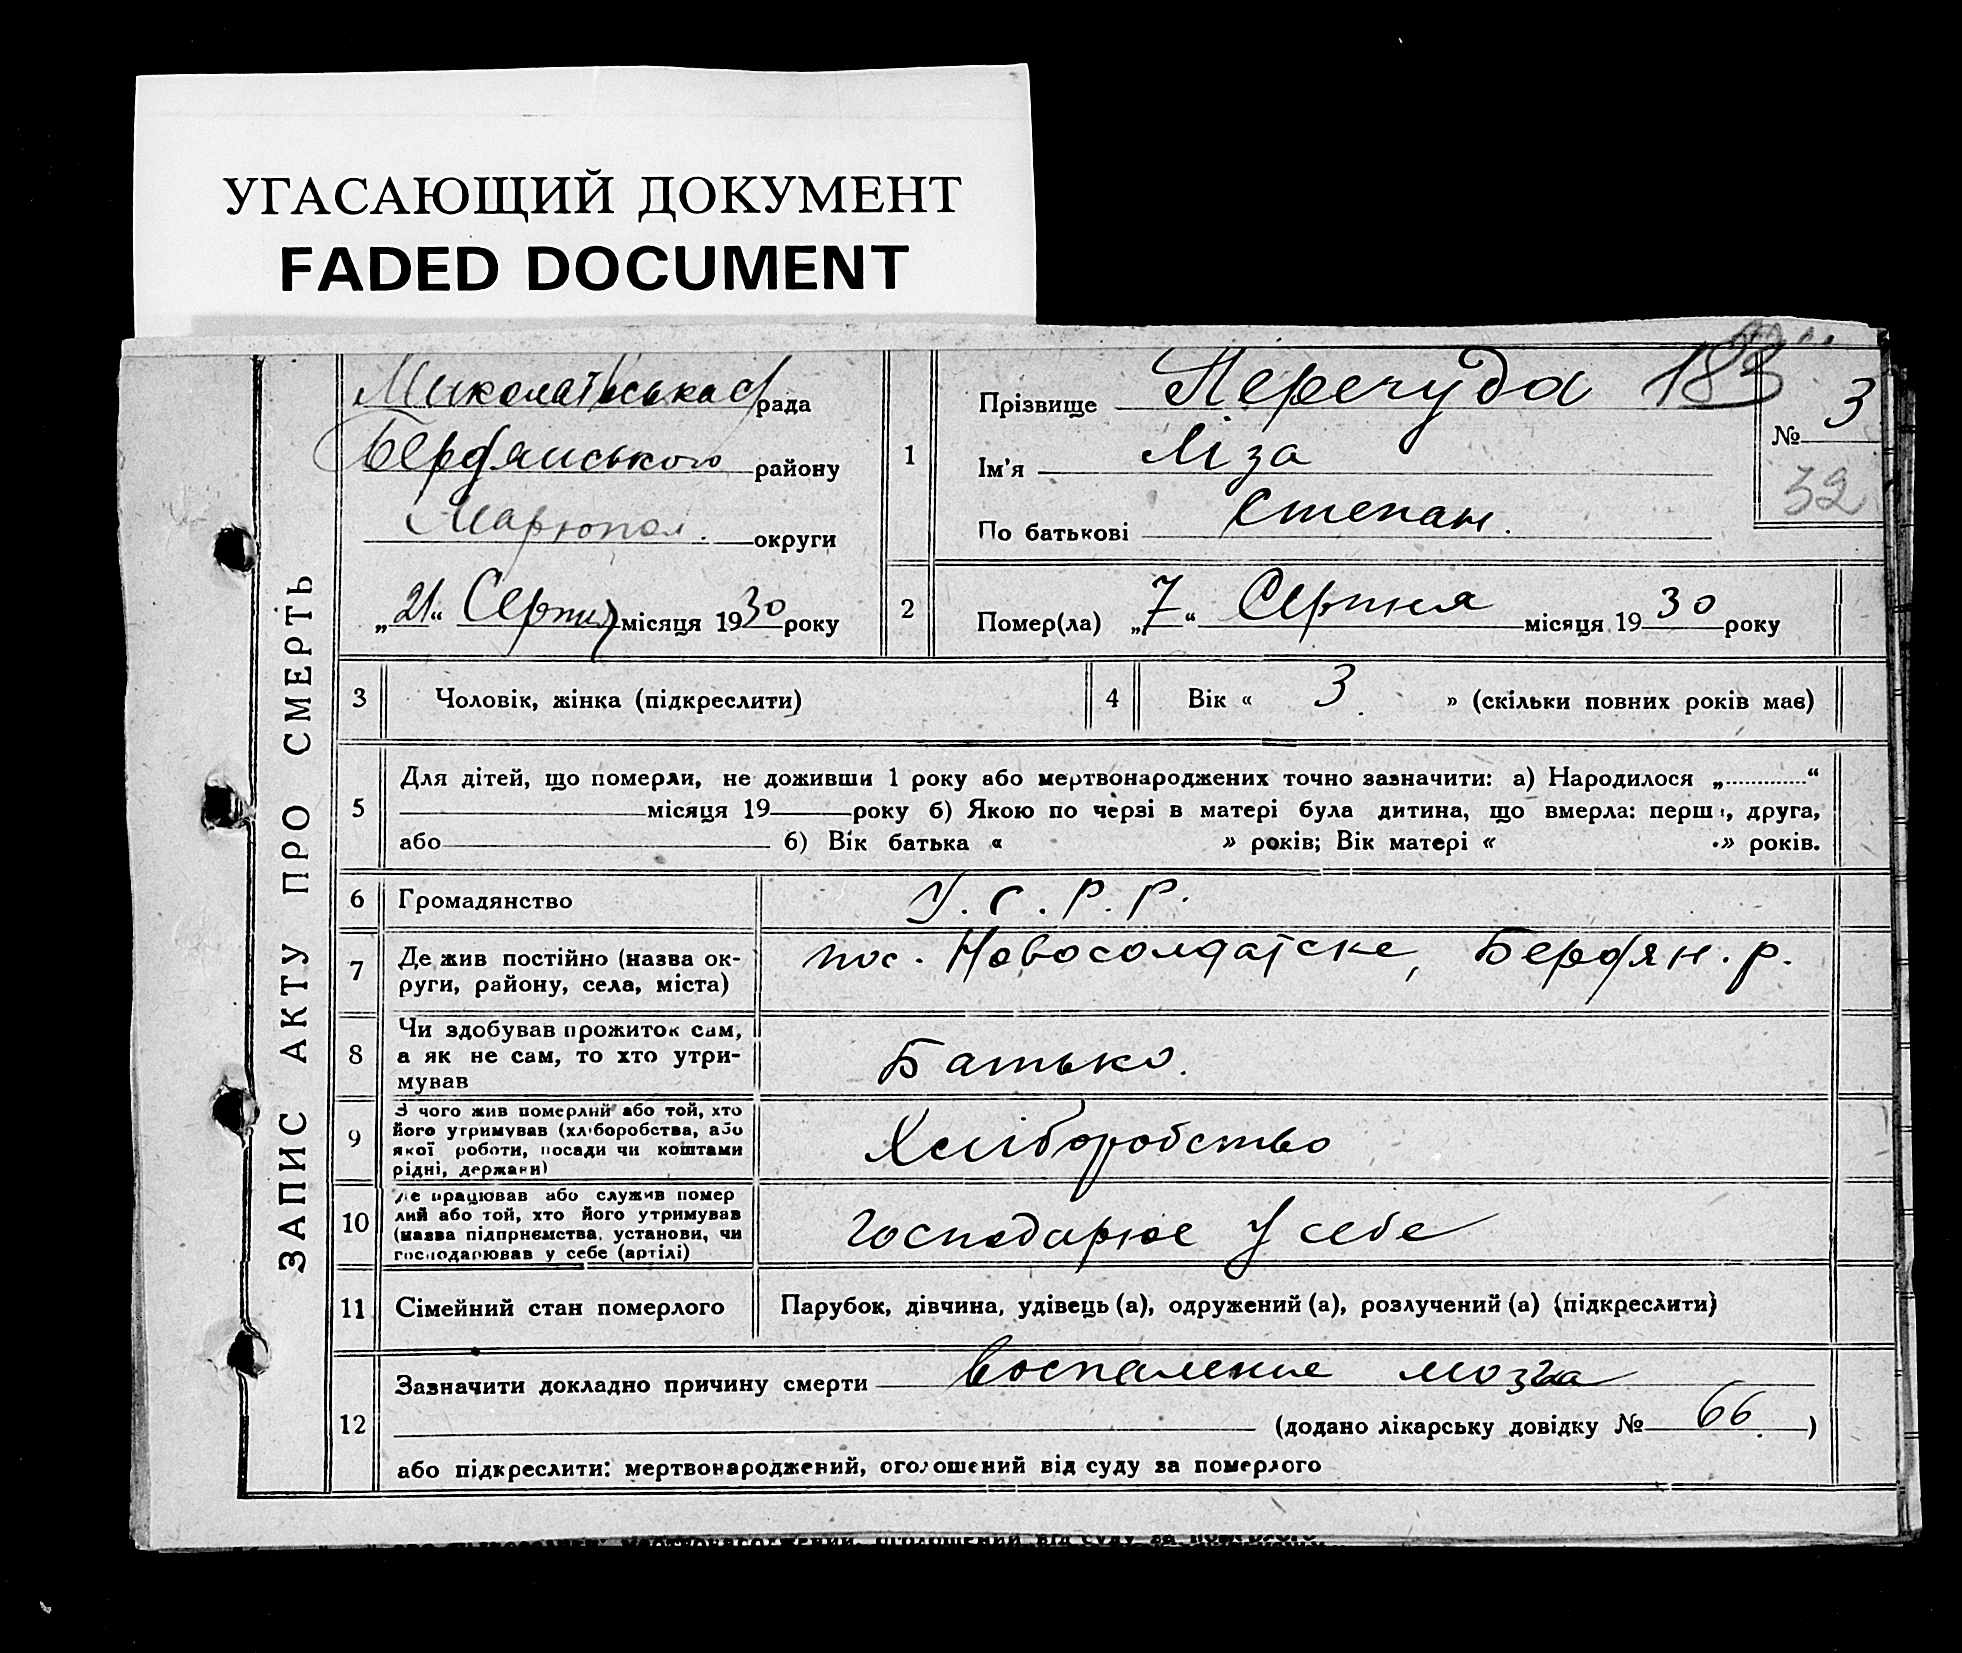 УГАСАЮЩИЙ ДОКУМЕНТ
FADED DOCUMENT
ЗАПИС АКТУ ПРО СМЕРТЬ
Миколаївська с/рада
Бердянського району
Маріюпол. округи
„21“ Серпня місяця 1930 року
1
Прізвище Перечуда 183
Ім’я Ліза
По батькові Степан.
№ 3
32
2
Помер(ла) „7“ Серпня місяця 1930 року
3 Чоловік, жінка (підкреслити)
4 Вік « 3 » (скільки повних років має)
5
Для дітей, що померли, не доживши 1 року або мертвонароджених точно зазначити: а) Народилося „............“
місяця 19 року б) Якою по черзі в матері була дитина, що вмерла: перша, друга,
або б) Вік батька « » років; Вік матері « » років.
6 Громадянство У.С.Р.Р.
7 Де жив постійно (назва ок-
руги, району, села, міста)
пос. Новосолдатське, Бердян. р.
8 Чи здобував прожиток сам,
а як не сам, то хто утри-
мував
Батько.
9 З чого жив померлий або той, хто
його утримував (хліборобства, або
якої роботи, посади чи коштами
рідні, держави)
Хліборобство
10 Де працював або служив помер
лий або той, хто його утримував
(назва підприємства, установи, чи
господарював у себе (артілі)
Господарює у себе
11 Сімейний стан померлого Парубок, дівчина, удівець (а), одружений (а), розлучений (а) (підкреслити)
12
Зазначити докладно причину смерти воспаление мозга
(додано лікарську довідку № 66.)
або підкреслити: мертвонароджений, оголошений від суду за померлого